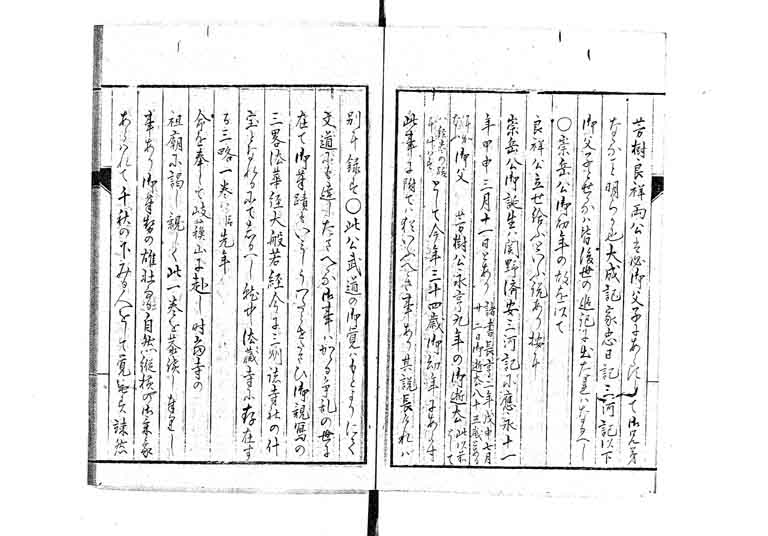 芳樹良祥両公も必御父子にあらすして御兄弟
なること明らか也大成記家忠日記三河記以下
御父子とせしハ皆後世の追記に出たれハなるへし
〇崇岳公御幼年の故を以て
良祥公立世給ふといふ説あり按に
崇岳公御誕生ハ関野済安三河記に應永十一
年甲申三月十一日とあり 諸書長享二年戊申七月
廿二日御逝去八十三歳とある
御父 芳樹公永享九年の御逝去 此以某
とて今年三十四歳御幼年にあらす
此事に附てハ猶いふへき事あり其説長けれハ
別に録す〇此公武道の御覚ハもとよりにて
文道にも達したまへる御事ハかゝる争乱の世に
在て御筆蹟もいとうつくしくましまし御親写の
三畧法華経大般若経今に三州諸寺社の什
宝となれるにて知るへし就中法蔵寺に存在す
る三略一巻ハ 先年
命を奉して岐獲山に赴し時當寺の
祖廟に謁し親しく此一巻を拝読し奉りし
事あり御筆勢の雄壮自然縦横の御気象
あらハれて千秋の下みる人をして覚えす竦然